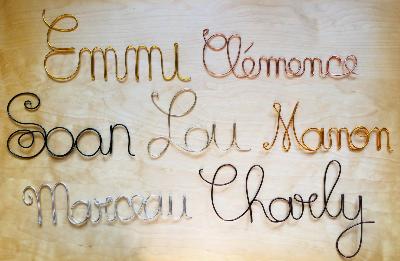 Emmi Clémence
Soan Lou Manon
Marceau Charly